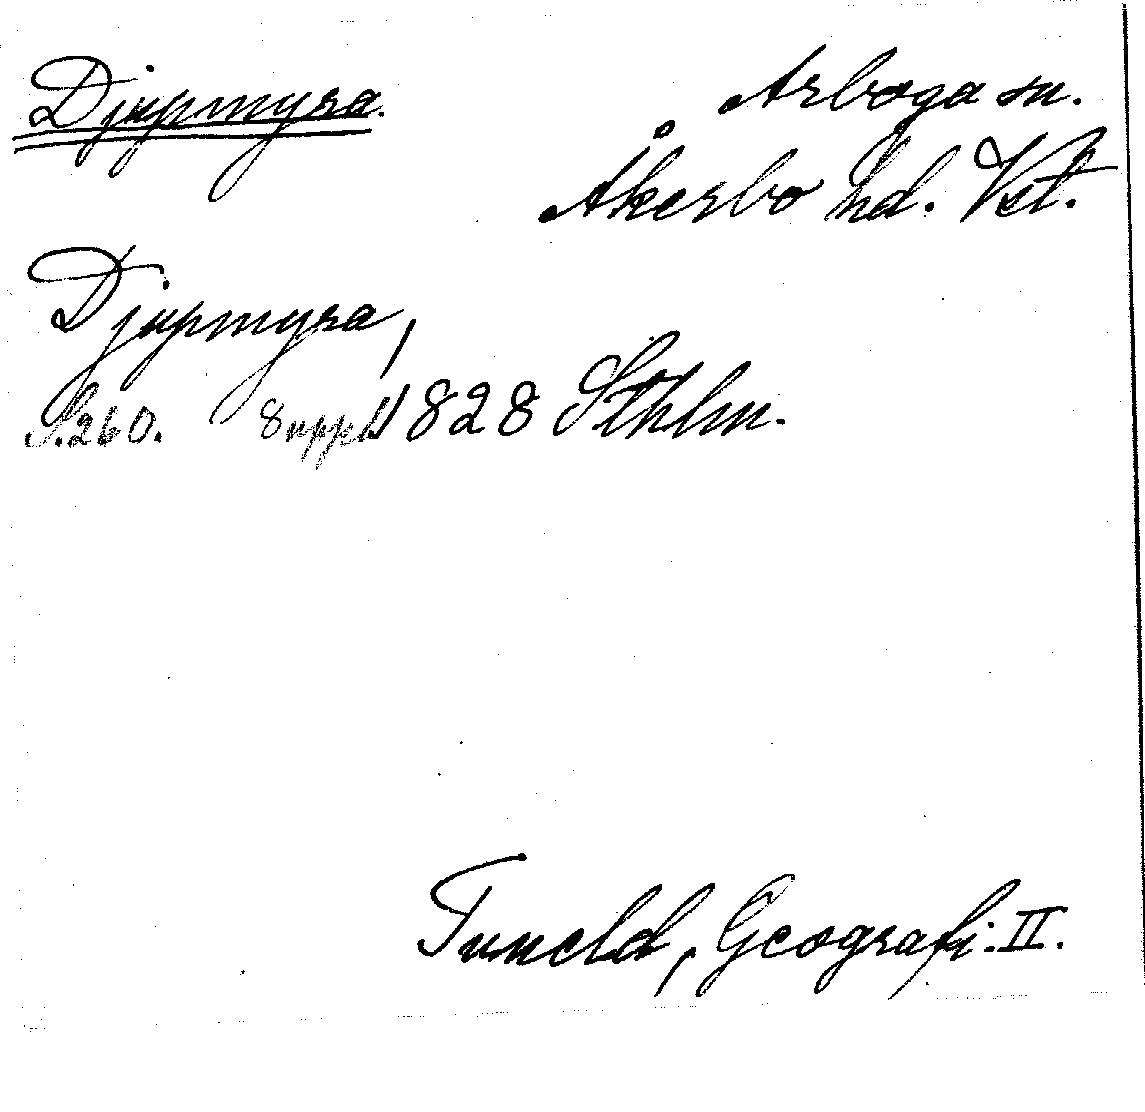 Djupmyra.
Arboga sn.
Åkerbo hd. Vstl.
Djupmyra,
S.260. 8 uppl. 1828 Sthlm.
Tuneld, Geografi. II.